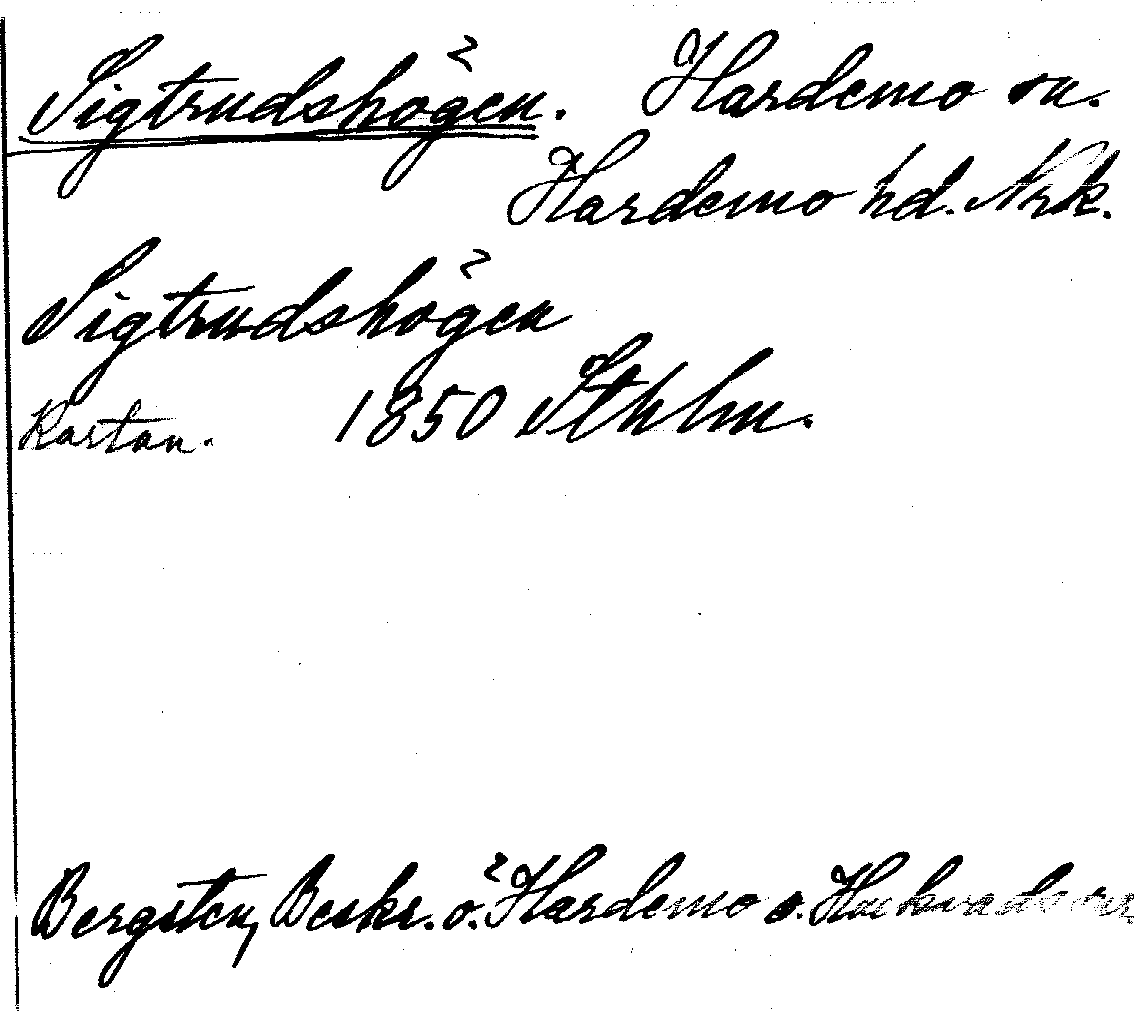 Sigtrudshögen. Hardemo sn.
Hardemo hd. Nrk.
Sigtrudshögen
Kartan. 1850 Sthlm.
Bergsten, Beskr. ö. Hardemo o. Kvistbro